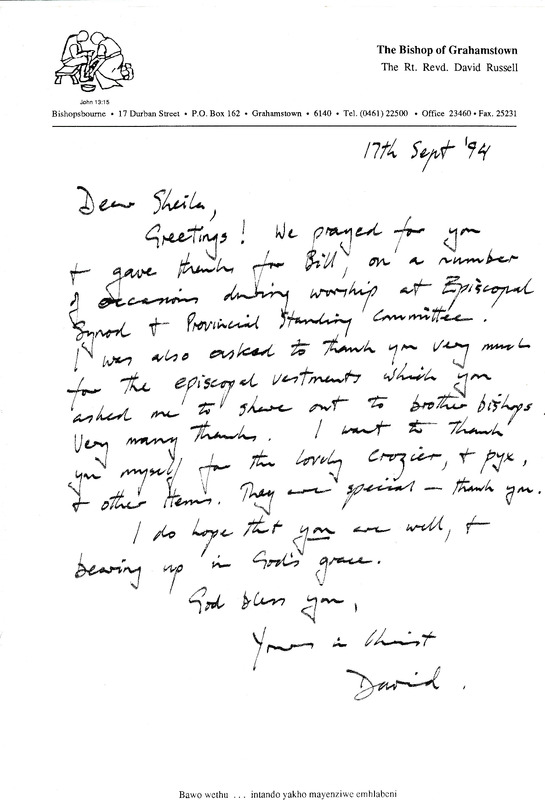 The Bishop of Grahamstown
The Rt. Revd. David Russell
John 13:15
Bishopsbourne • 17 Durban Street • P.O. Box 162 • Grahamstown • 6140 • Tel. (0461) 22500 • Office 23460 • Fax. 25231
17th Sept '94
Dear Sheila,
Greetings! We prayed for you
+ gave thanks for Bill, on a number
of occasions during worship at Episcopal
Synod + Provincial Standing Committee.
I was also asked to thank you very much
for the episcopal vestments which you
asked me to share out to brother bishops.
Very many thanks. I want to thank
you myself for the lovely Crozier, + pyx,
+ other items. They are special — thank you.
I do hope that you are well, +
bearing up in God's grace.
God bless you,
Yours in Christ
David.
Bawo wethu ... intando yakho mayenziwe emhlabeni